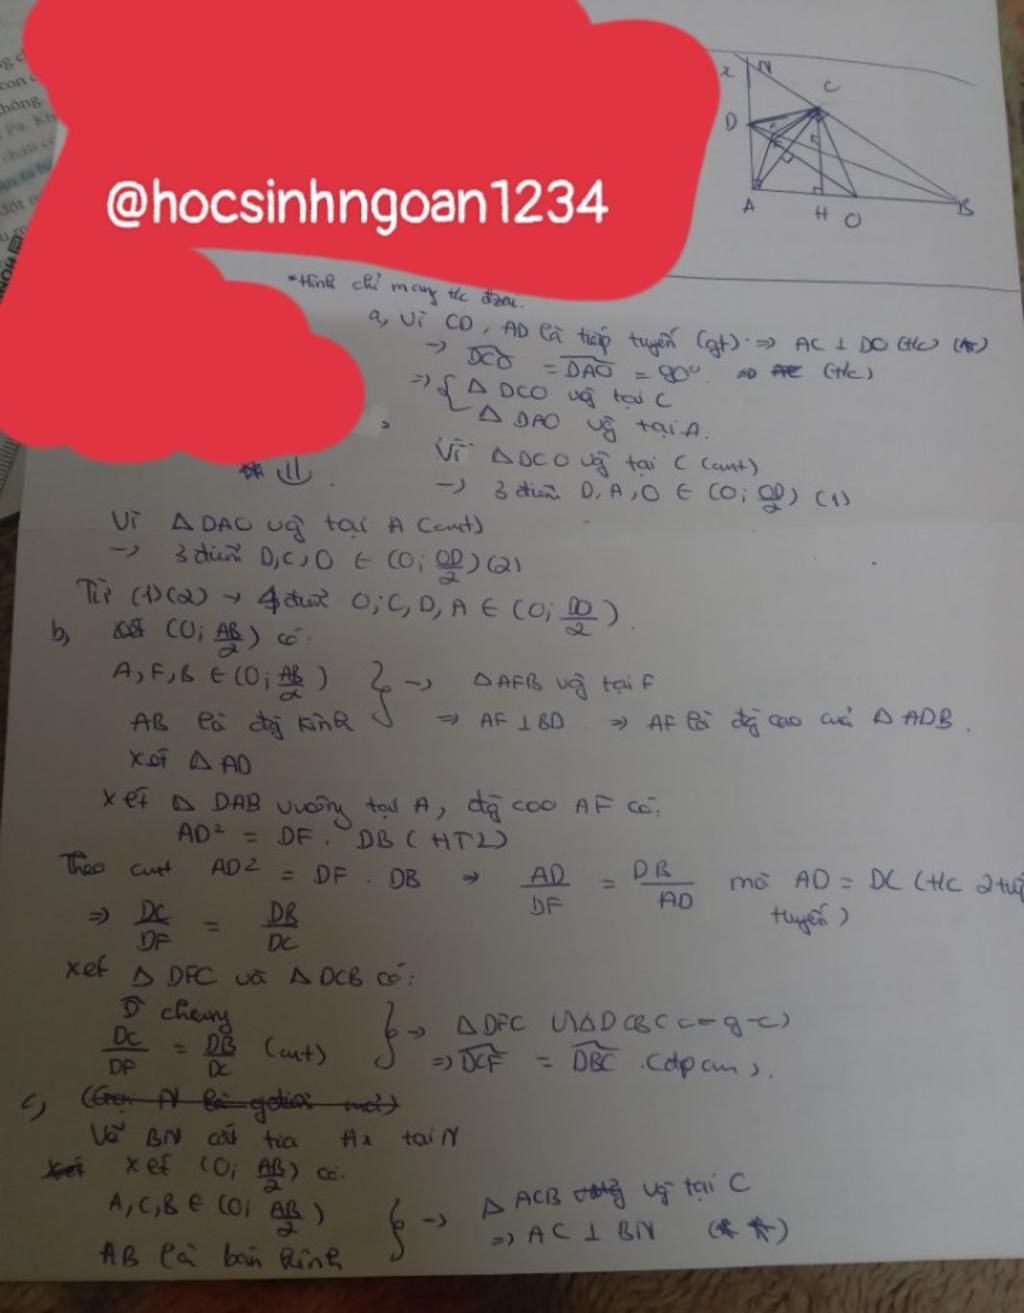 @hocsinhngoan1234
x N C
D
A H O B
*Hình chỉ mang t/c
a, Vì CD, AD là tiếp tuyến (gt) => AC ⊥ DO (t/c) (*)
-> DCO = DAO = 90°. (t/c)
=> { Δ DCO vg̃ tại C
Δ DAO vg̃ tại A.
Vì Δ DCO vg̃ tại C (cmt)
-> 3 điểm D, A, O ∈ (O; OD/2) (1)
Vì Δ DAO vg̃ tại A (cmt)
-> 3 điểm D, C, O ∈ (O; OD/2) (2)
Từ (1)(2) -> 4 điểm O; C, D, A ∈ (O; DO/2).
b, xét (O; AB/2) có:
A, F, B ∈ (O; AB/2) } -> Δ AFB vg̃ tại F
AB là đg̃ kính => AF ⊥ BD => AF là đg̃ cao của Δ ADB.
xét Δ AD
xét Δ DAB vuông tại A, đg̃ cao AF có:
AD² = DF . DB (HTL)
Theo cmt AD² = DF . DB => AD/DF = DB/AD mà AD = DC (t/c 2
tuyến)
=> DC/DF = DB/DC
xét Δ DFC và Δ DCB có:
D chung
DC/DF = DB/DC (cmt) } -> Δ DFC ∽ Δ DCB (c-g-c)
=> DCF = DBC (đpcm).
c,
Vẽ BN cắt tia Ax tại N
xét (O; AB/2) có:
A, C, B ∈ (O; AB/2) } -> Δ ACB vg̃ tại C
AB là bán kính => AC ⊥ BN (**)